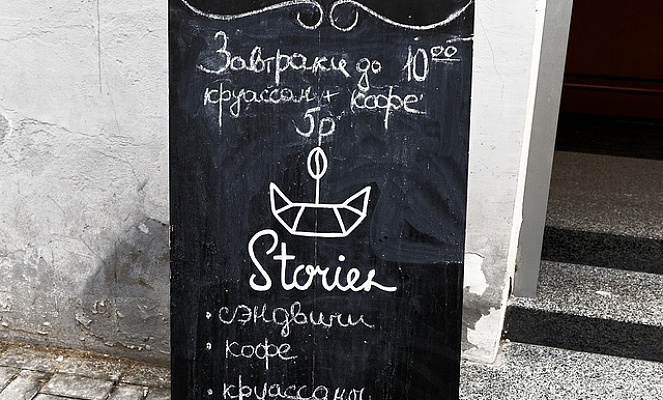 Завтраки до 10⁰⁰
круассан + кофе
5р
Stories
• сэндвичи
• кофе
• круассаны